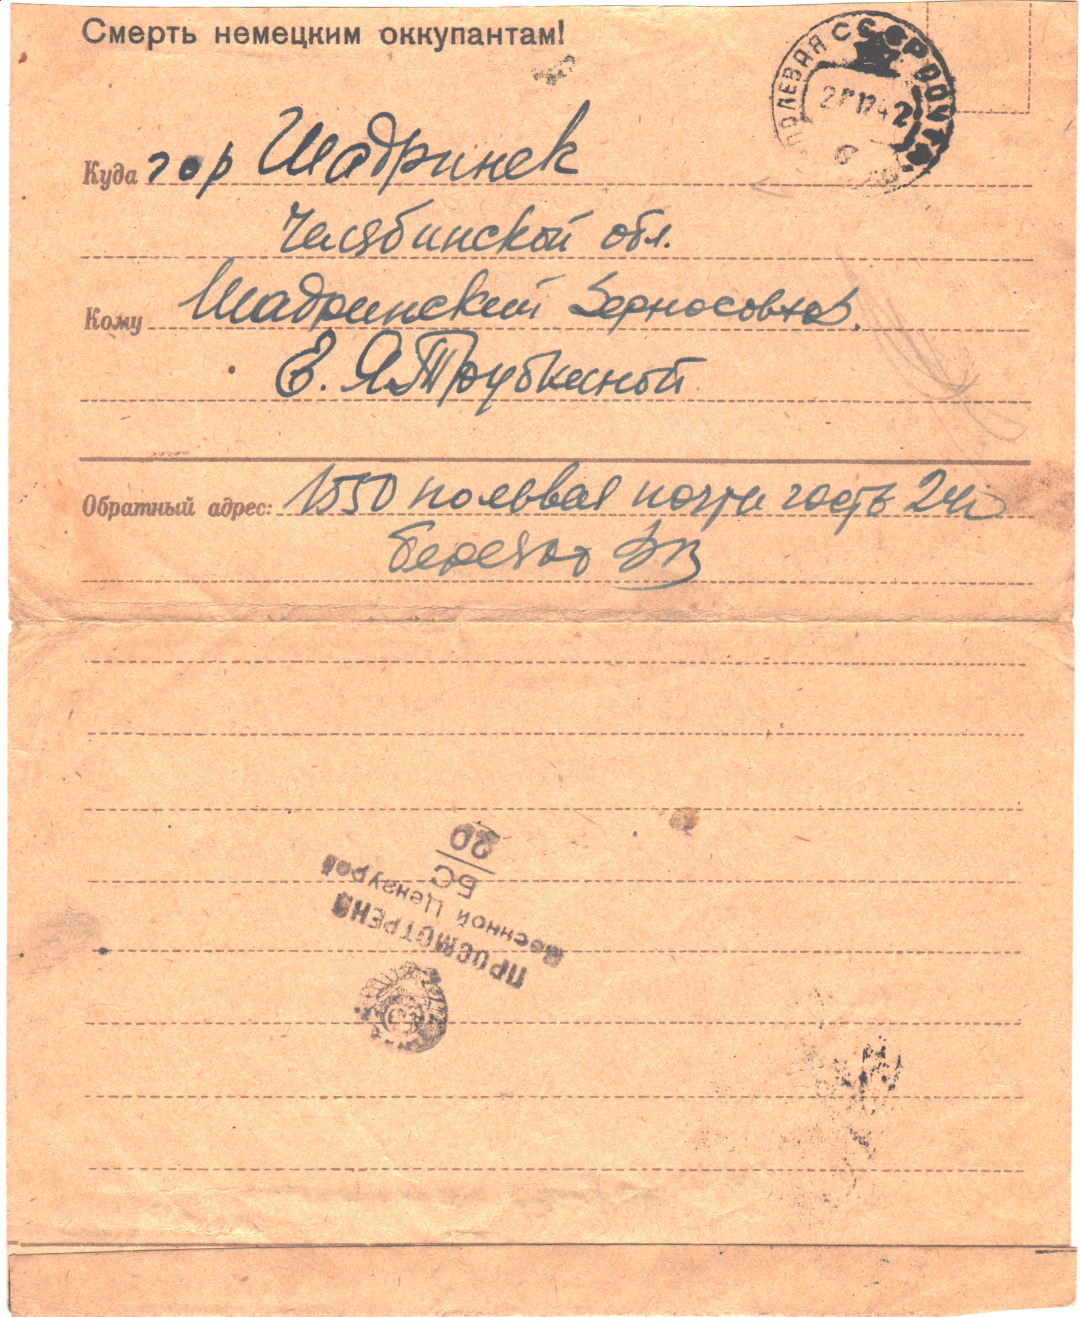 Смерть немецким оккупантам!
ПОЛЕВАЯ СССР ПОЧТА
Куда гор Шадринск
Челябинской обл.
Кому Шадринский Зерносовхоз.
Е. Я. Трубкиной
Обратный адрес: 1550 полевая почта часть 24
ПРОСМОТРЕНО
Военной Цензурой
БС
20